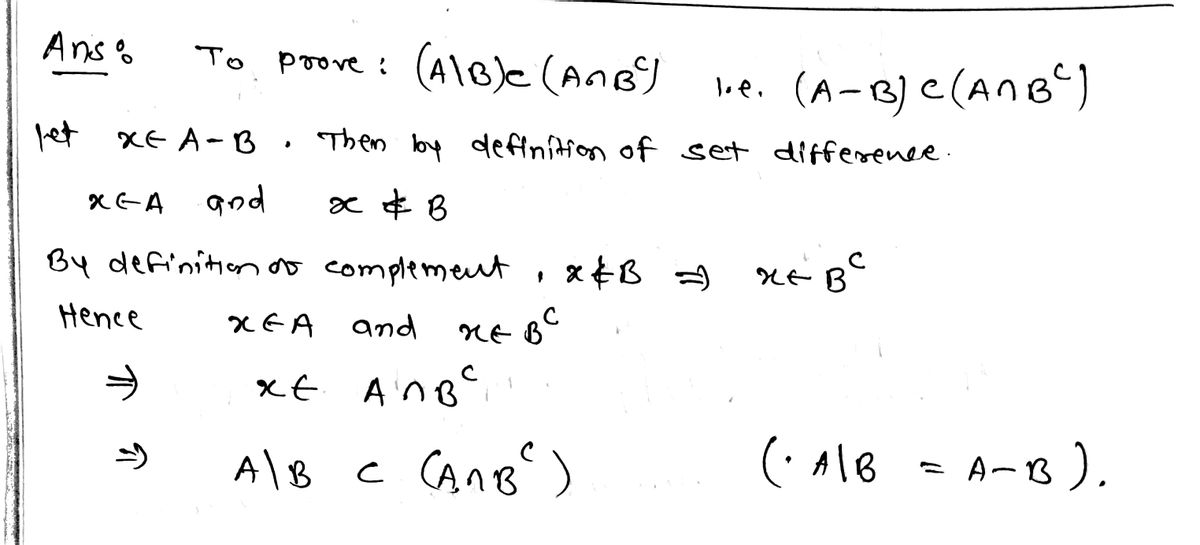 Ans: To prove: (A\B)⊂(A∩Bᶜ) i.e. (A-B)⊂(A∩Bᶜ)
let x∈A-B. Then by definition of set difference.
x∈A and x∉B
By definition of complement, x∉B ⇒ x∈Bᶜ
Hence x∈A and x∈Bᶜ
⇒ x∈ A∩Bᶜ
⇒ A\B ⊂ (A∩Bᶜ) (· A\B = A-B).